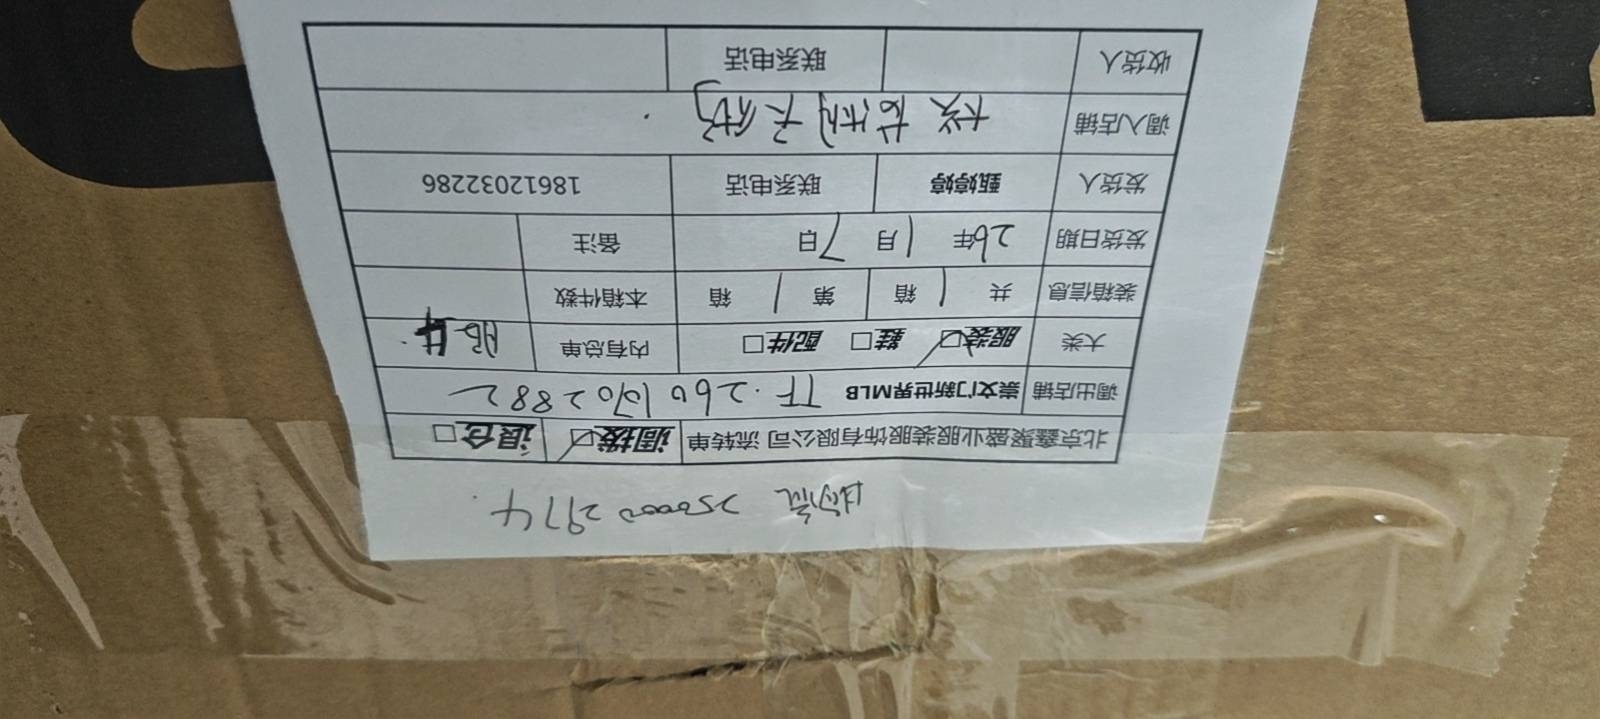 25000 2974
北京鑫聚盛业服装服饰有限公司 流转单 调拨☑ 退仓□
调出店铺 崇文门新世界MLB TF·260 1702882
大类 服装☑ 鞋□ 配件□ 内有总单
装箱信息 共 1 箱 第 1 箱 本箱件数
发货日期 26年 1月 7日 备注
发货人 甄婷婷 联系电话 18612032286
调入店铺
收货人 联系电话